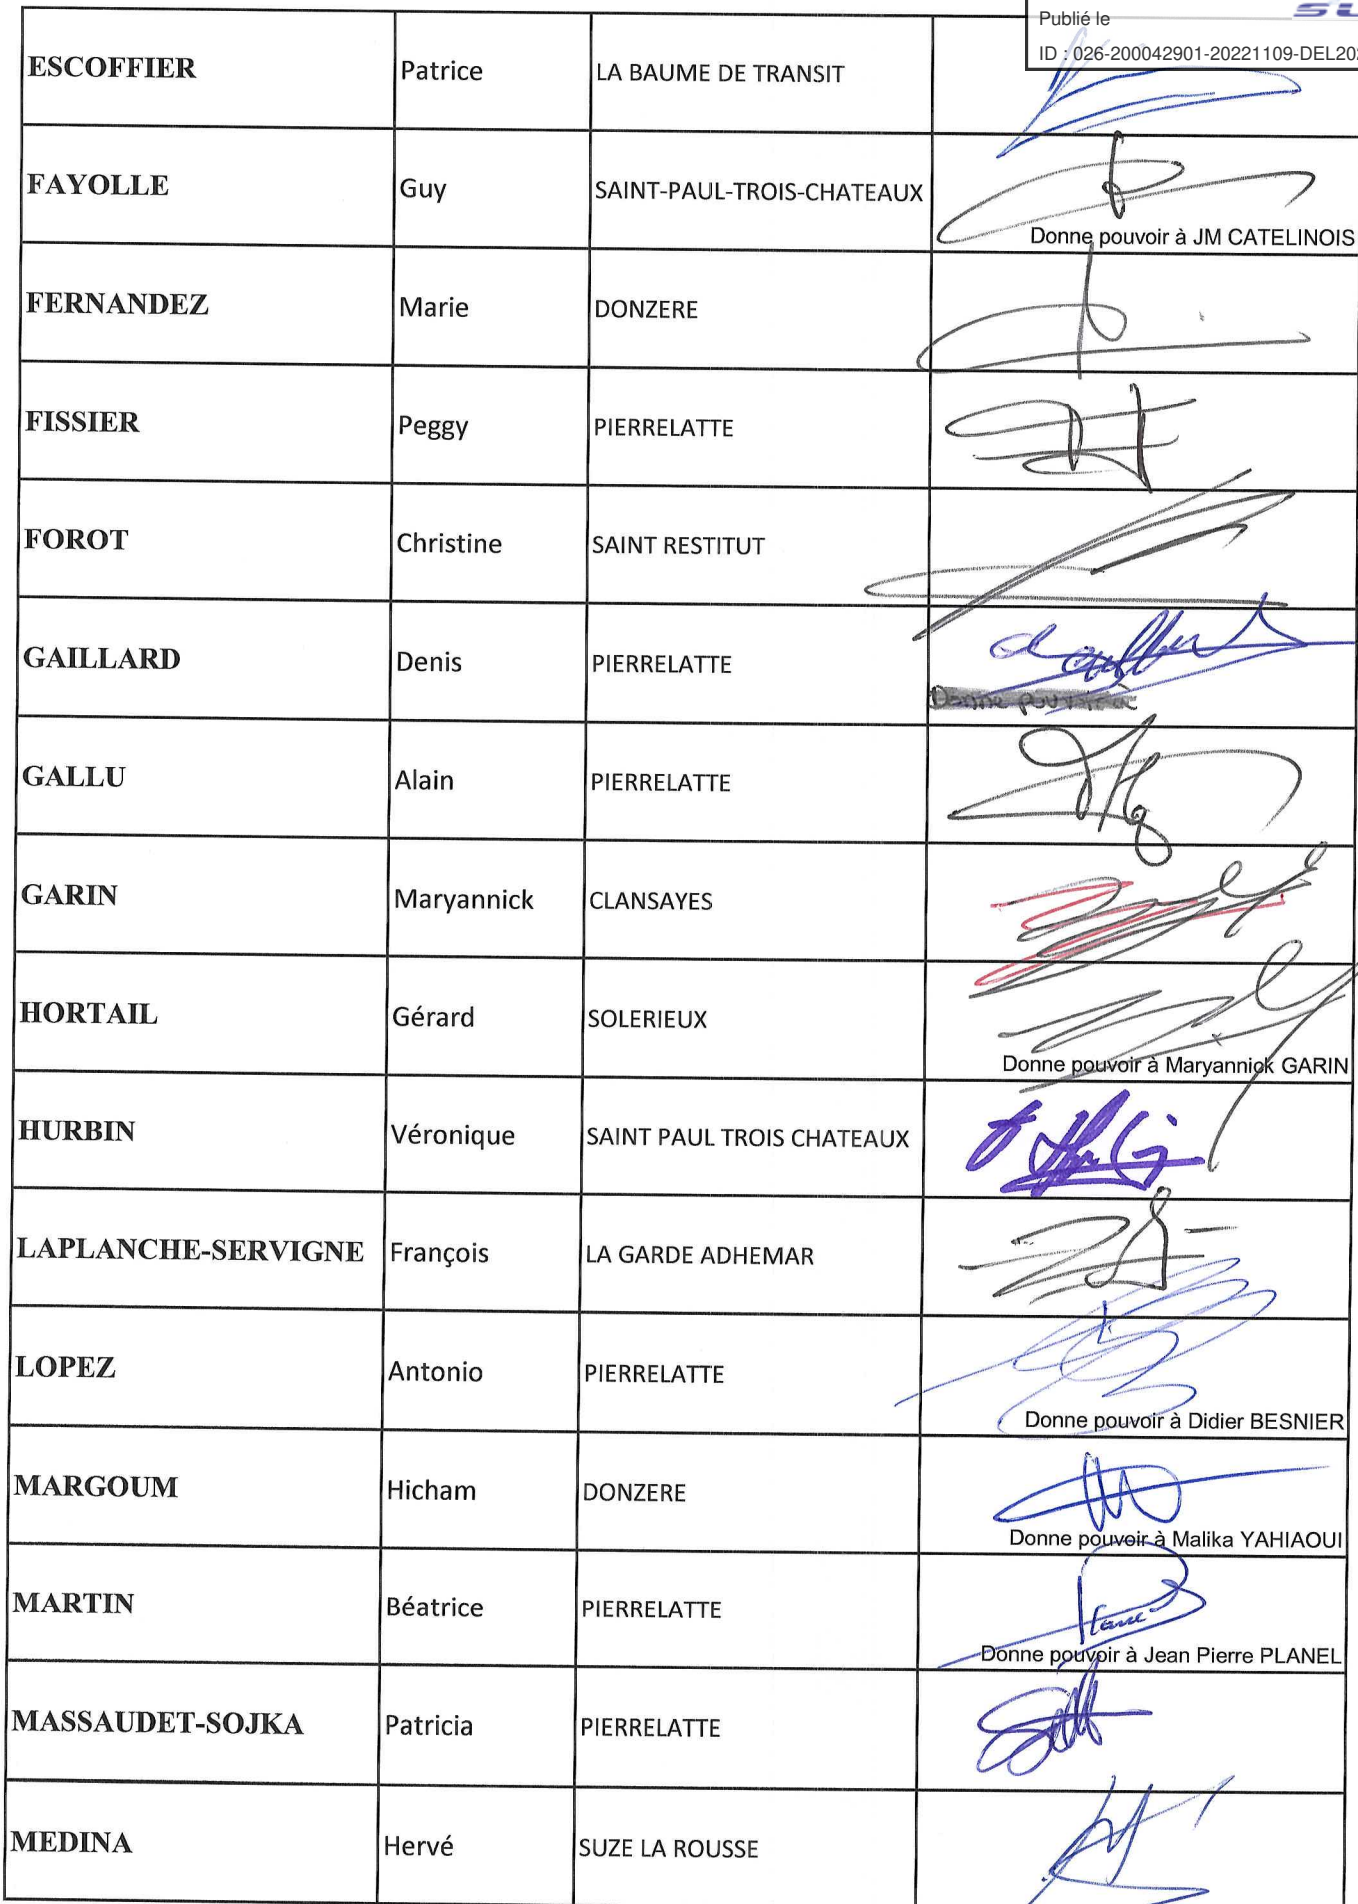 Publié le
ID : 026-200042901-20221109-DEL20
ESCOFFIER Patrice LA BAUME DE TRANSIT
FAYOLLE Guy SAINT-PAUL-TROIS-CHATEAUX
Donne pouvoir à JM CATELINOIS
FERNANDEZ Marie DONZERE
FISSIER Peggy PIERRELATTE
FOROT Christine SAINT RESTITUT
GAILLARD Denis PIERRELATTE
Donne pouvoir à
GALLU Alain PIERRELATTE
GARIN Maryannick CLANSAYES
HORTAIL Gérard SOLERIEUX
Donne pouvoir à Maryannick GARIN
HURBIN Véronique SAINT PAUL TROIS CHATEAUX
LAPLANCHE-SERVIGNE François LA GARDE ADHEMAR
LOPEZ Antonio PIERRELATTE
Donne pouvoir à Didier BESNIER
MARGOUM Hicham DONZERE
Donne pouvoir à Malika YAHIAOUI
MARTIN Béatrice PIERRELATTE
Donne pouvoir à Jean Pierre PLANEL
MASSAUDET-SOJKA Patricia PIERRELATTE
MEDINA Hervé SUZE LA ROUSSE